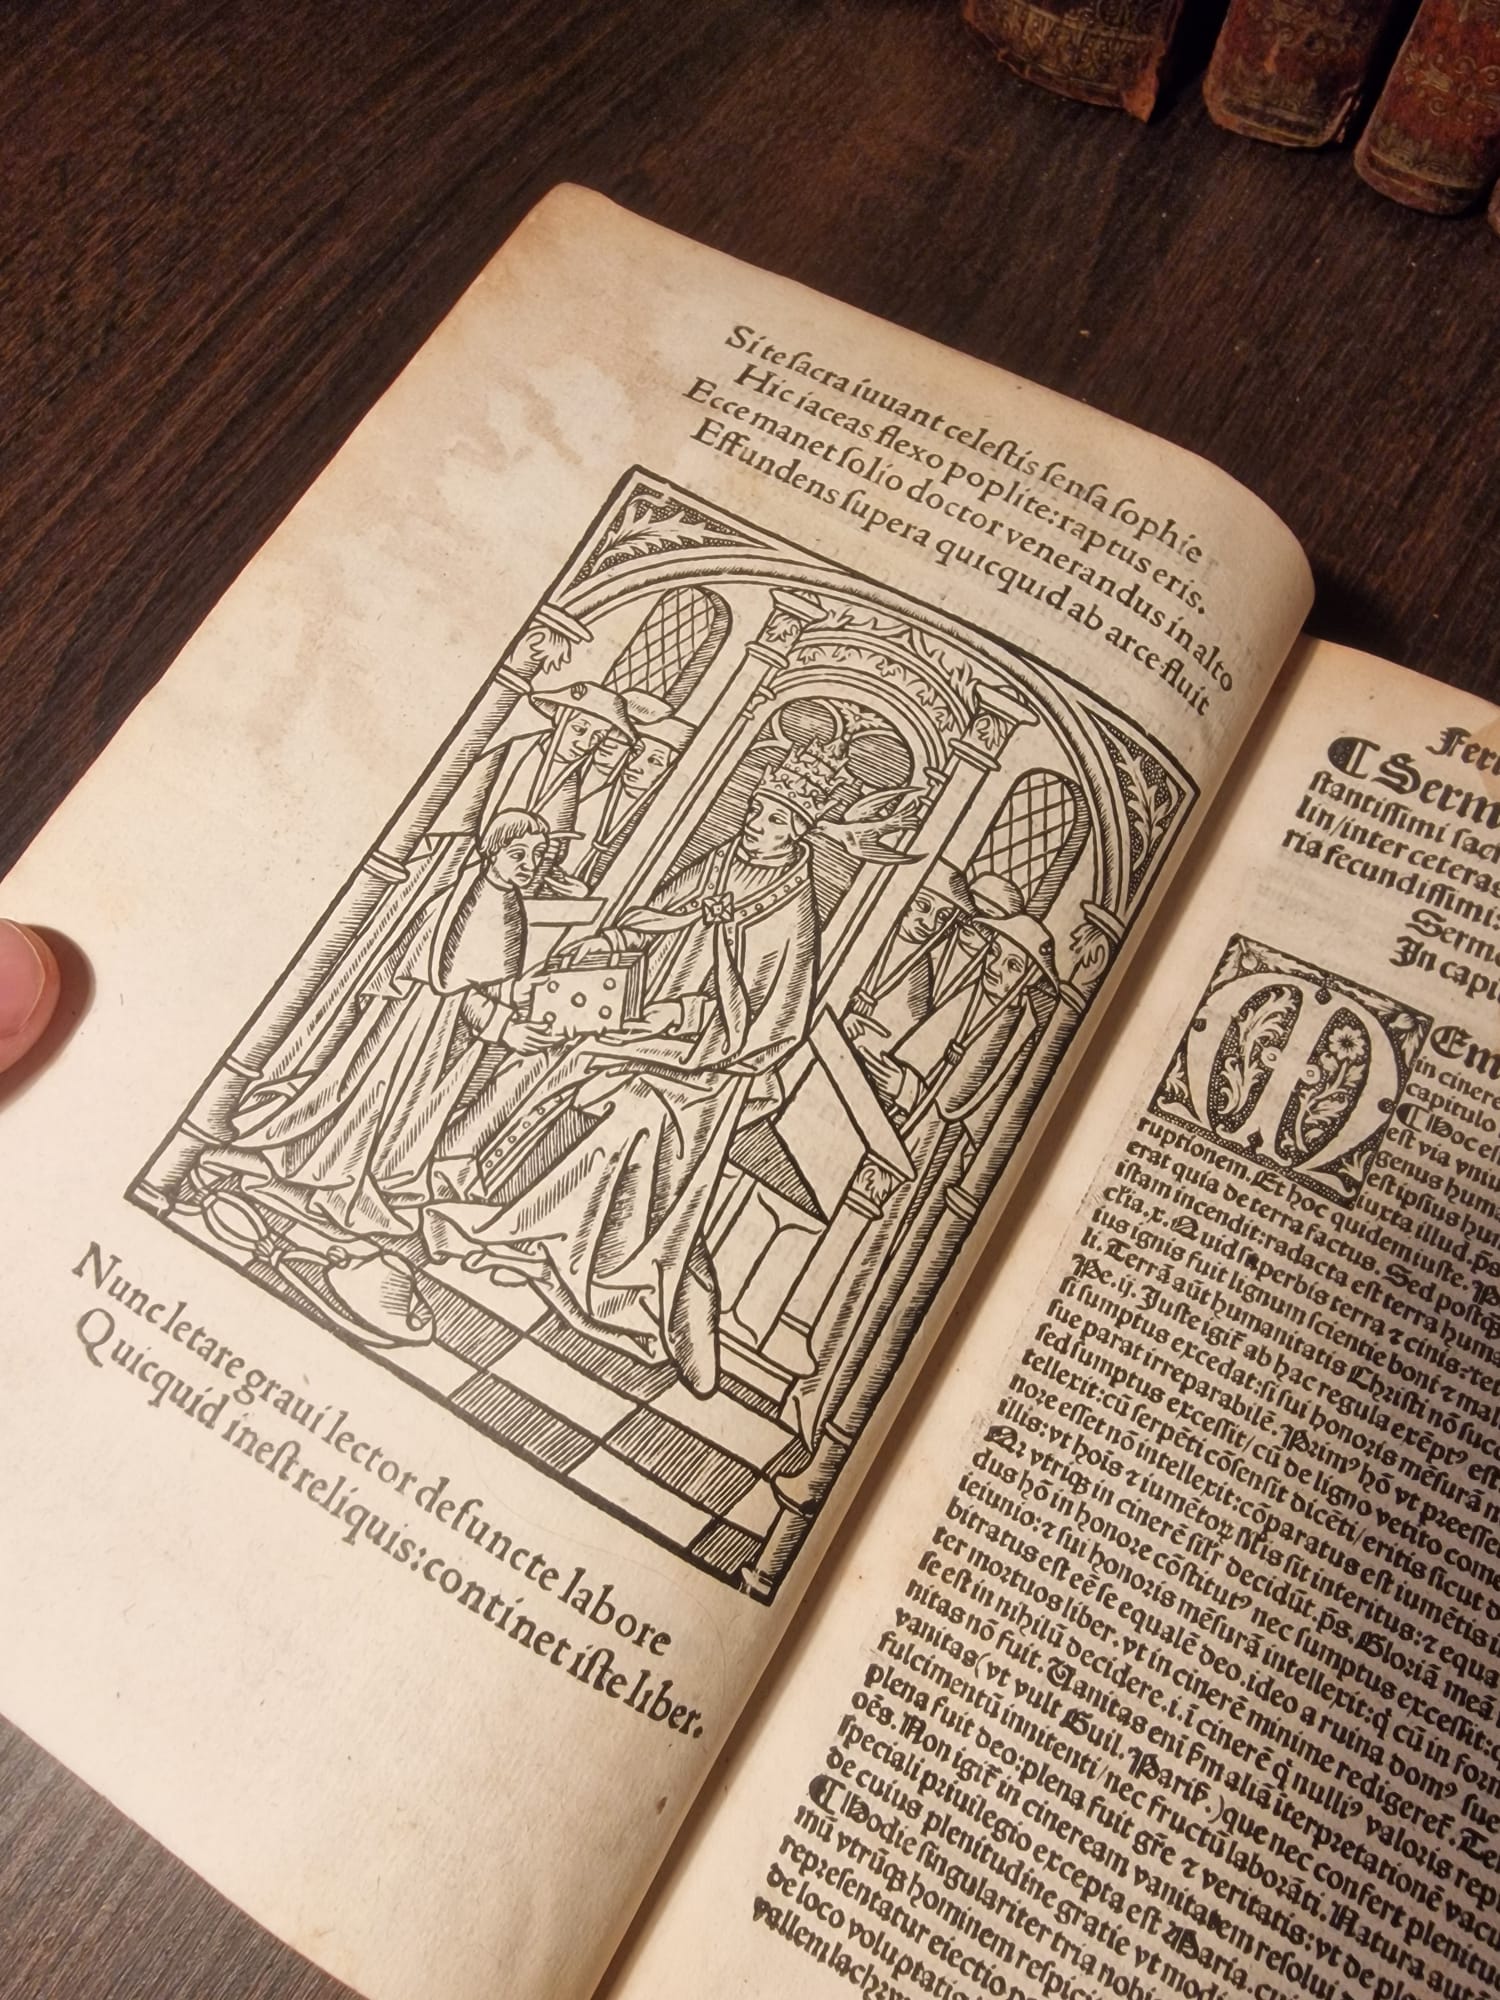 Si te ſacra iuuant celeſtis ſenſa ſophie
Hic iaceas flexo poplite: raptus eris.
Ecce manet ſolio doctor venerandus in alto
Effundens ſupera quicquid ab arce fluit
Nunc letare graui lector defuncte labore
Quicquid ineſt reliquis: continet iſte liber.
Feri
¶ Serm
ſtantiſſimi ſacr
lin/inter ceteras
ria fecundiſſimi:
Sermo
In capi
M Em
in cinere
capitulo
¶ Hoc eſ
eſt via vniu
genus huma
eſt ipſius hum
iuxta illud.
ruptionem. Et hoc quidem iuſte.
erat quia de terra factus. Sed poſtq̃
iſtam incendit: radacta eſt terra huma
Quid ſuperbis terra ⁊ cinis:
ius ignis fuit lignum ſcientie boni ⁊ mal
li. Terrā aūt humanitatis Chriſti nō ſucc
ij. Juſte igit̃ ab hac regula
ſi ſumptus excedat: ſi ſui honoris mēſurā n
ſue parat irreparabilē. Primꝰ hō vt preeſſe
ſed ſumptus exceſſit/ cū de ligno vetito come
tellexit: cū ſerpēti cōſenſit dicēti/ eritis ſicut d
nore eſſet nō intellexit: cōparatus eſt iumētis
illis: vt hoīs ⁊ iumētoꝝ ſit interitus: ⁊ equa
in cinerē decidūt. p̄s. Gloriā meā
dus hō in honore cōſtitutꝰ nec ſumptus exceſſit:
ieiunio: ⁊ ſui honoris mēſurā intellexit: cū in form
bitratus eſt eē ſe equalē deo. ideo a ruina domꝰ ſue
ter mortuos liber. vt in cinerē minime redigeret̃.
ſe eſt in nihilū decidere. i. ī cinerē q̄ nulliꝰ valoris
nitas nō fuit. Vanitas eni
vanitas (vt vult Guil. ) que nec confert plenitu
fulcimentū innitenti/ nec fructū laborāti. Natura
plena fuit deo: plena fuit gr̄e ⁊ veritatis: vt de
oēs. Non igit̃ in cineream vanitatem reſolui
ſpeciali priuilegio excepta eſt Maria.
de cuius plenitudine gratie vt
¶ Hodie ſingulariter tria nobis
mū vtrūqꝫ hominem reſpicit
repreſentatur eiectio
de loco voluptatis
vallem lachrym